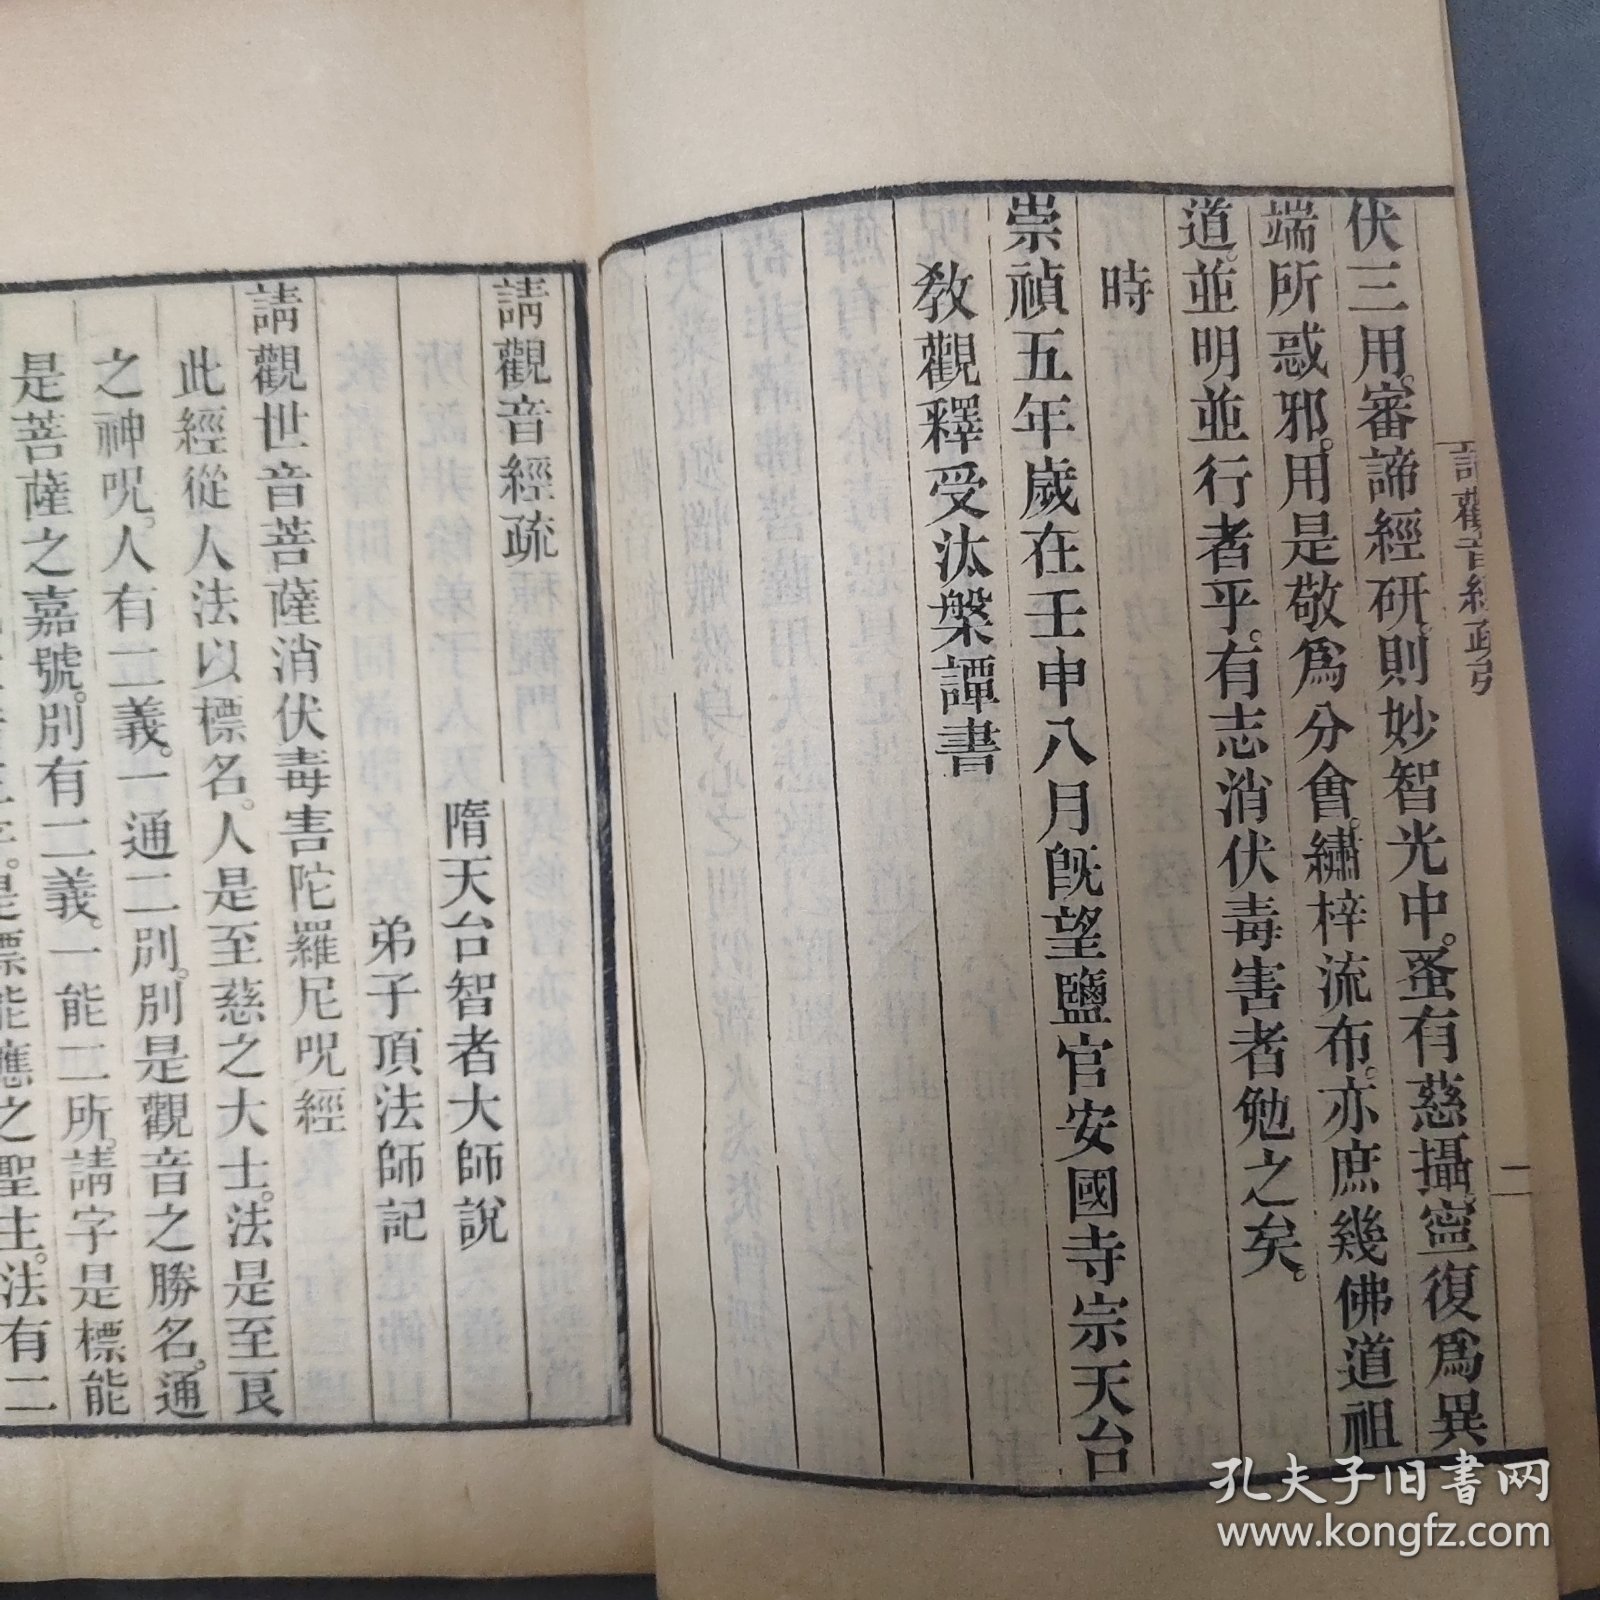 伏三用。審諦經研。則妙智光中。蚤有慈攝。寧復爲異
端所惑邪。用是敬爲分會。繡梓流布。亦庶幾佛道祖
道。並明並行者乎。有志消伏毒害者勉之矣。
時
崇禎五年歲在壬申八月旣望鹽官安國寺宗天台
教觀釋受汰槃譚書
請觀音經疏
隋天台智者大師說
弟子頂法師記
請觀世音菩薩消伏毒害陀羅尼呪經
此經從人法以標名。人是至慈之大士。法是至良
之神呪。人有二義。一通二別。別是觀音之勝名。通
是菩薩之嘉號。別有二義。一能二所。請字是標能
是標能應之聖主。法有二
請觀音經疏引
二
孔夫子旧书网
www.kongfz.com